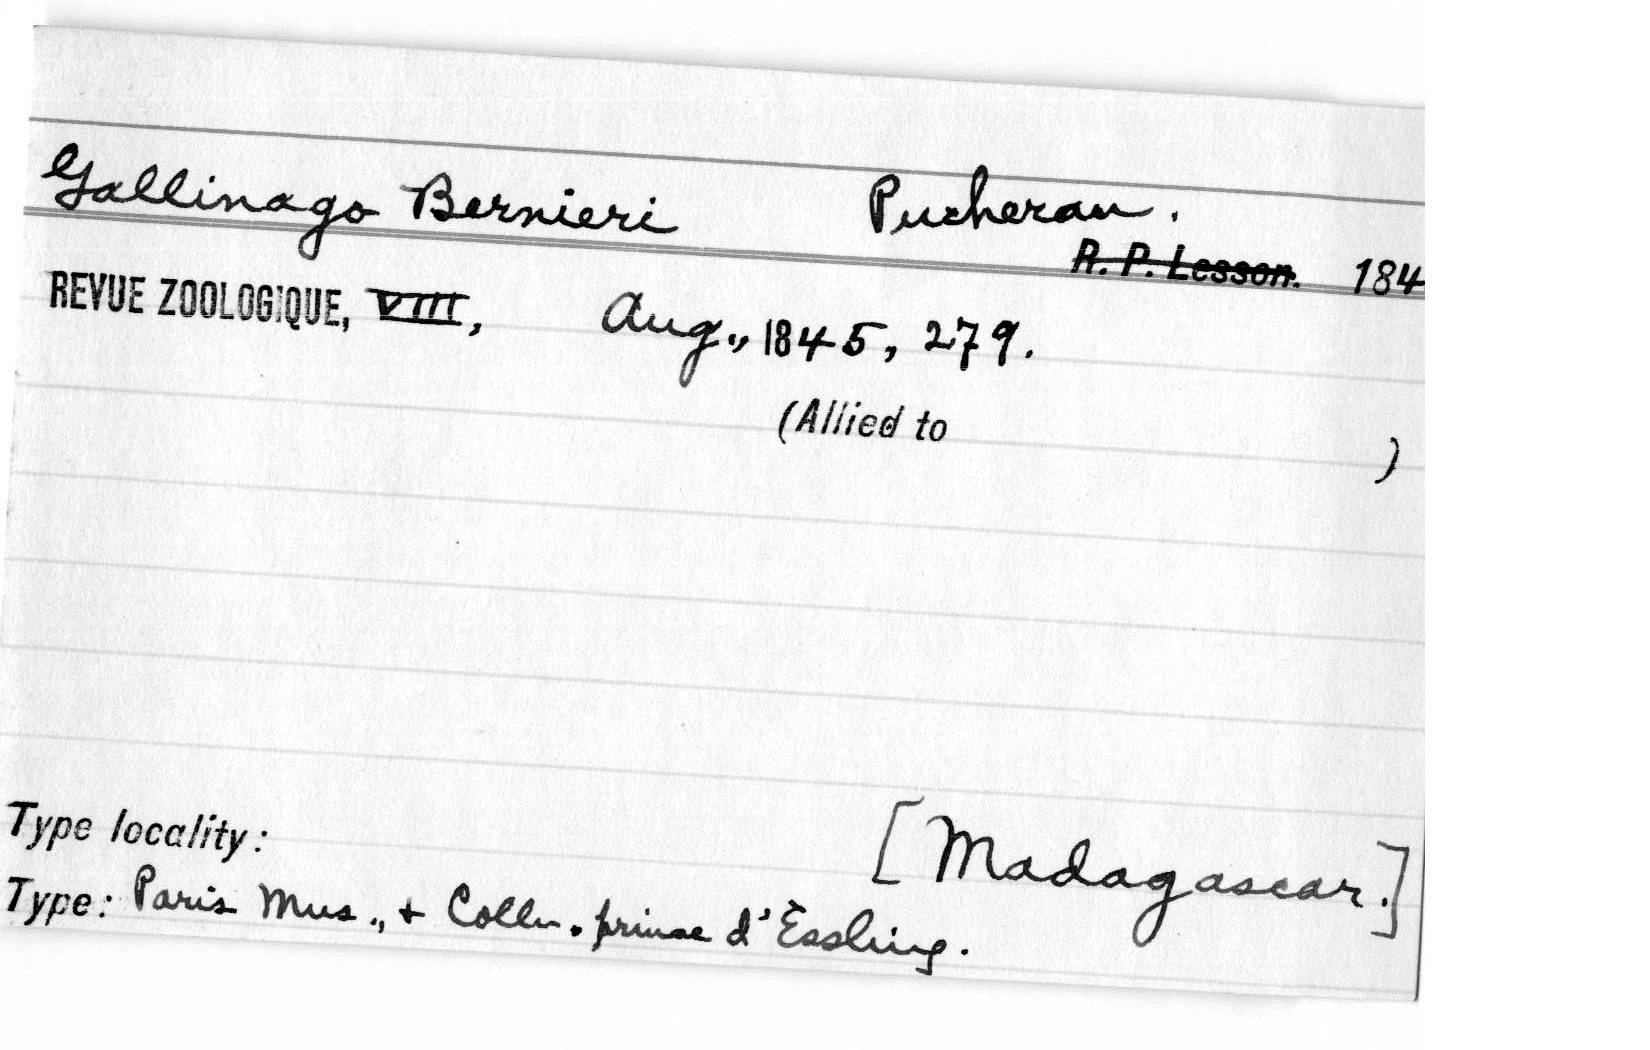 Gallinago Bernieri Pucheran.
R. P. Lesson. 184
REVUE ZOOLOGIQUE, VIII, Aug., 1845, 279.
(Allied to )
Type locality: [Madagascar.]
Type: Paris Mus., + Colln. prince d'Essling.